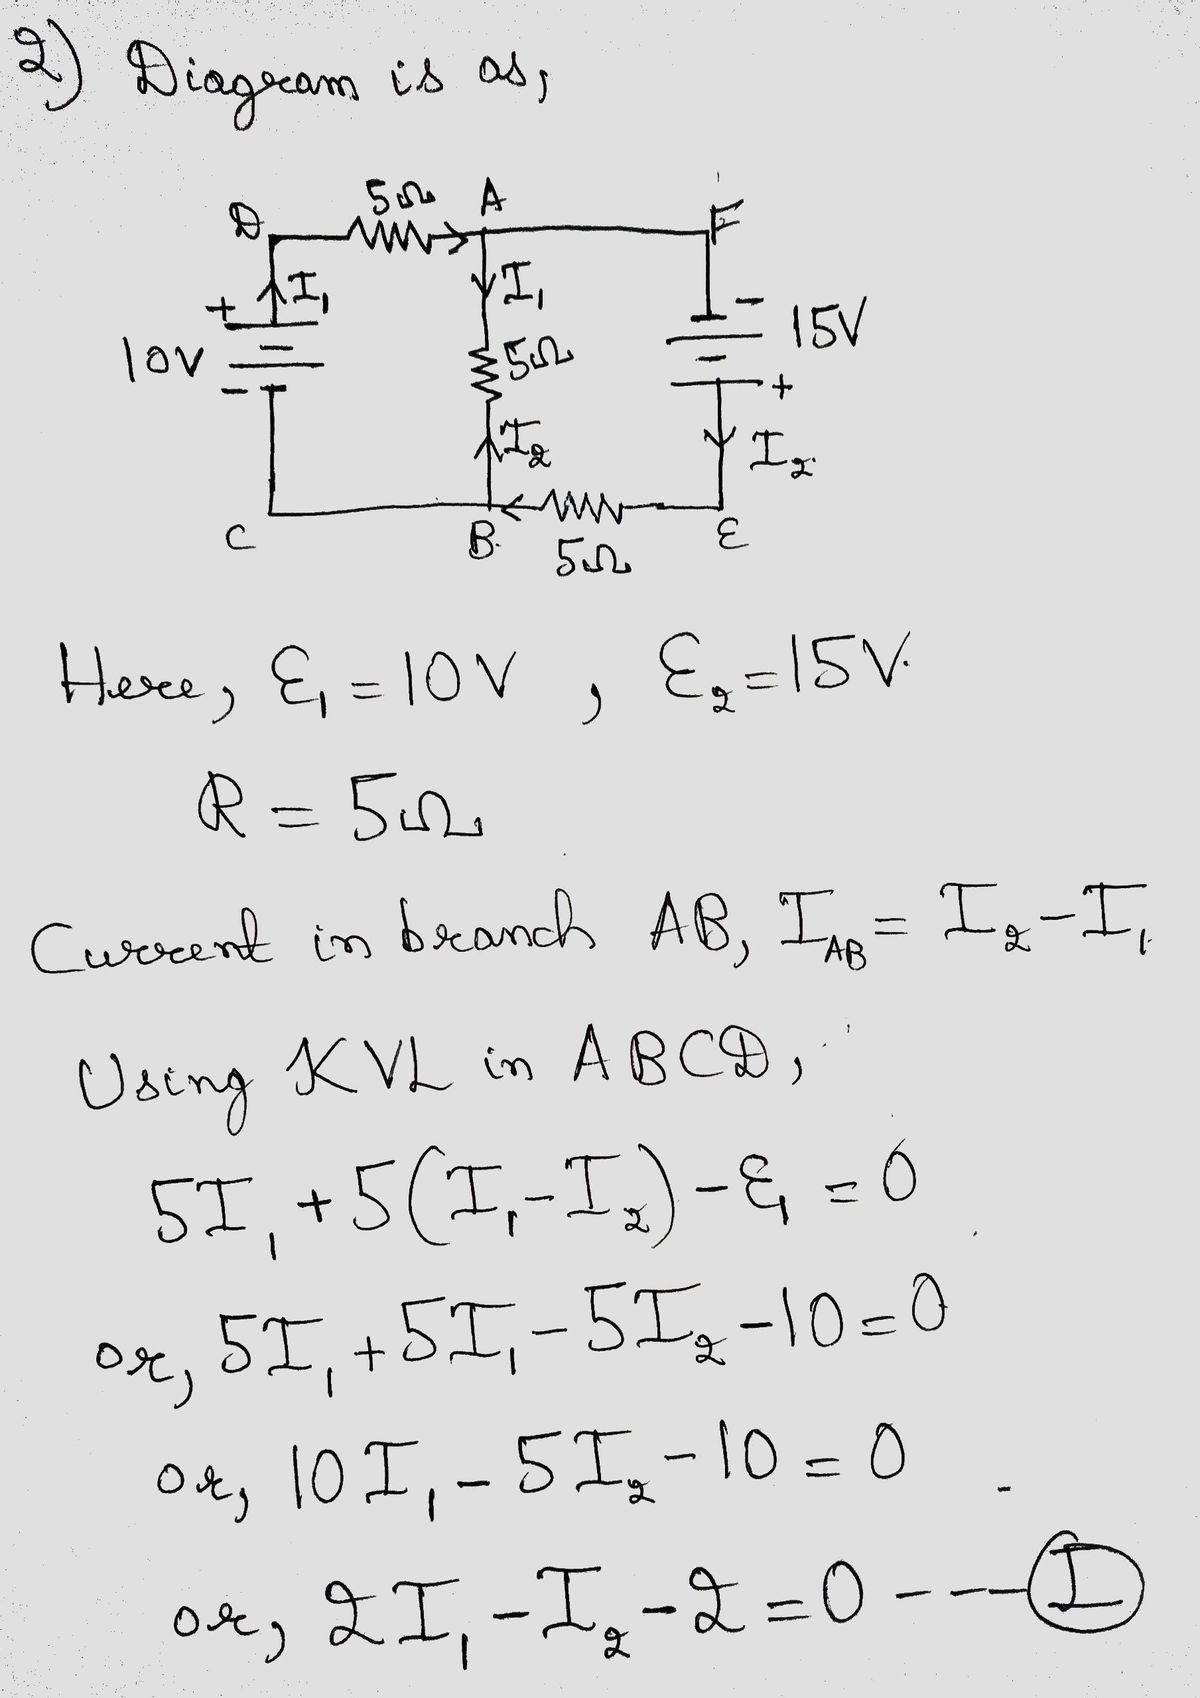 2) Diagram is as,
5Ω A
D F
I₁ I₁
+ - 15V
10V 5Ω
- +
I₂ I₂
C B. 5Ω E
Here, Ɛ₁ = 10V , Ɛ₂ = 15V.
R = 5Ω
Current in branch AB, I_AB = I₂ - I₁
Using KVL in ABCD,
5I₁ + 5(I₁ - I₂) - Ɛ₁ = 0
or, 5I₁ + 5I₁ - 5I₂ - 10 = 0
or, 10I₁ - 5I₂ - 10 = 0
or, 2I₁ - I₂ - 2 = 0 --- I